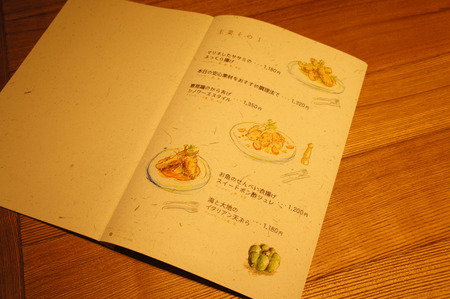 主菜もの1
ふっくら揚げ … 1,180円
本日の安心素材をおすすめ調理法で
… 1,320円
唐揚鶏のからあげ … 1,350円
ツノワーズスタイル
お魚のせんべい衣揚げ
スイートポン酢ジュレ … 1,200円
海と大地の
イタリアン天ぷら … 1,180円